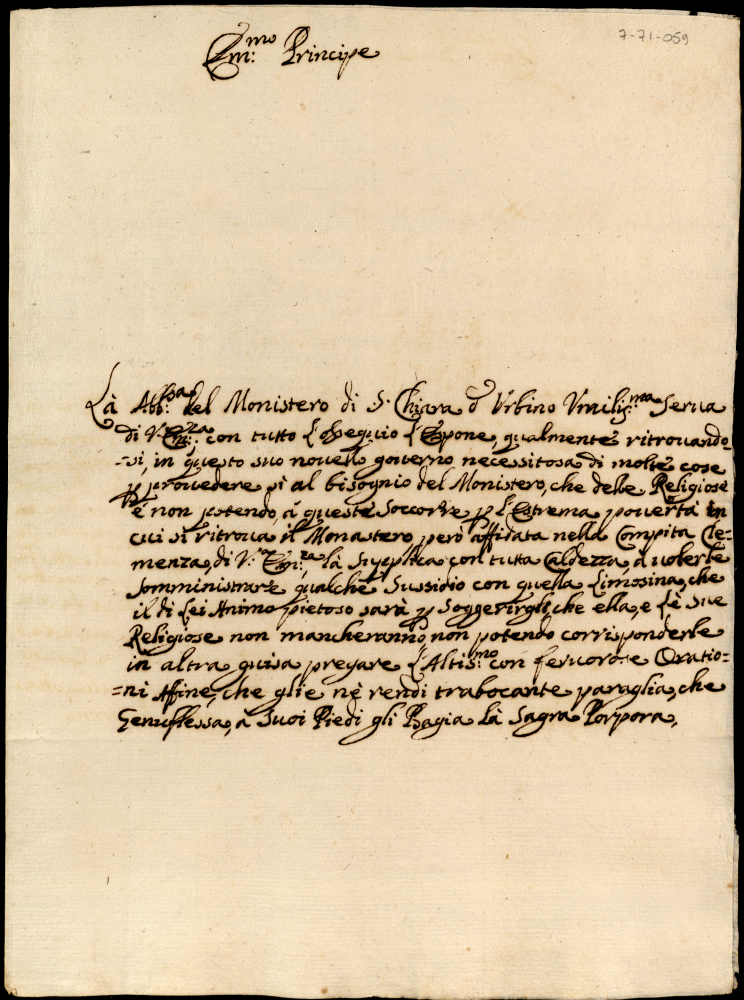 7-71-059
Em:mo Principe
Là Abb:sa del Monistero di S. Chiara d'Urbino Umilis:ma Serua
di V. Em:za con tutto l'ossequio l'Espone, qualmente ritrouando=
=si, in questo suo nouello gouerno necessitosa di molte cose
p prouedere sì al bisognio del Monistero, che delle Religiose
e non potendo, à queste Soccorre p l'Estrema pouertà in
cui si ritroua il Monastero, però affidata nella Compita Cle=
menza, di V. Em:za là Supplica con tutta Caldezza, à uolerle
somministrare qualche Sussidio con quella Limosina, che
il di Lei Animo pietoso sarà p Soggerirgli, che ella, e le sue
Religiose non mancheranno, non potendo corrisponderle
in altra guisa pregare l'Altis:mo con feruorose Oratio=
=ni Affine, che glie ne rendi trabocante paraglia, che
Genuflessa, à Suoi Piedi gli Bagia là Sagra Porpora,